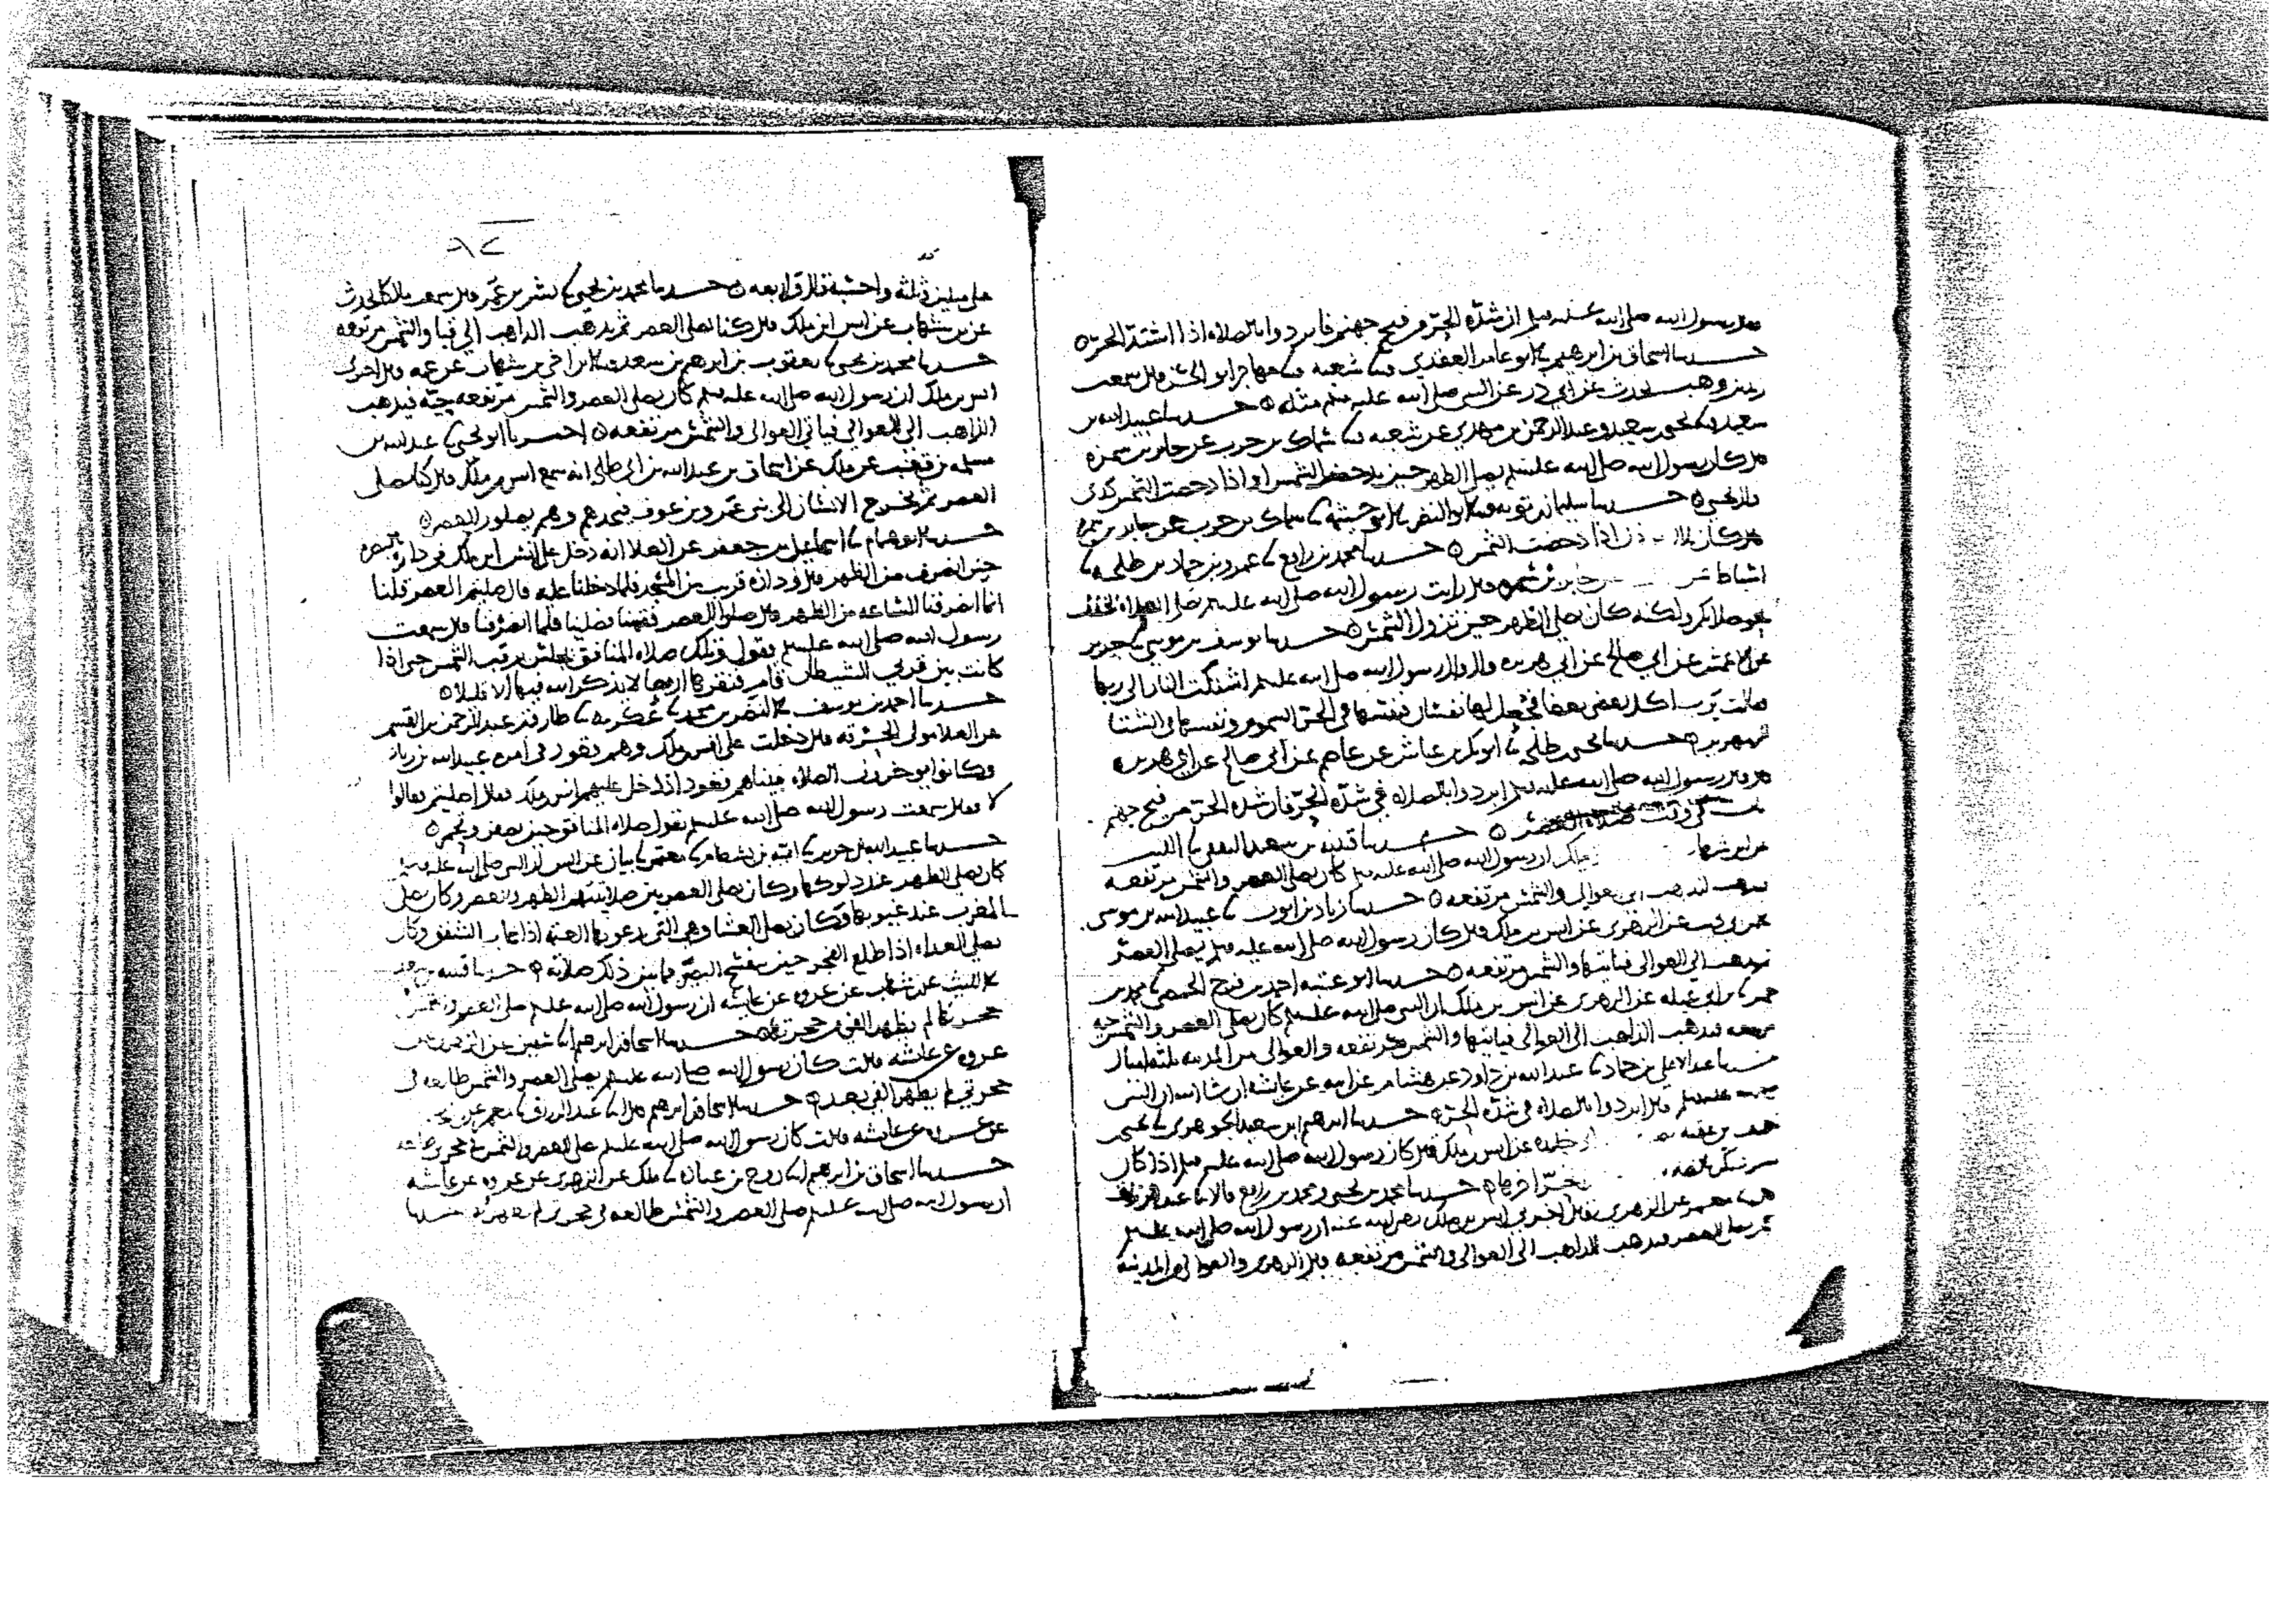 قال رسول الله صلى الله عليه وسلم ان شدة الحر من فيح جهنم فابردوا بالصلاه اذا اشتد الحر
حدثنا اسحاق بن ابرهيم ابو عامر العقدي شعبه مهاجر ابو الحسن قال سمعت
زيد بن وهب يحدث عن ابي ذر عن النبي صلى الله عليه وسلم مثله حدثنا عبيد الله بن
سعيد يحيى بن سعيد وعبد الرحمن بن مهدي عن شعبه سماك بن حرب عن جابر بن سمره
قال كان رسول الله صلى الله عليه وسلم يصلي الظهر حين تدحض الشمس او اذا دحضت الشمس
حدثنا سليمان بن توبه ابو النضر ابو خيثمه سماك بن حرب عن جابر بن سمره
قال كان بلال اذا دحضت الشمس حدثنا محمد بن رافع عمرو بن حماد بن طلحه
اسباط جابر بن سمره قال رايت رسول الله صلى الله عليه وسلم
صلاتكم ولكنه كان يصلي الظهر حين تزول الشمس حدثنا يوسف بن موسى جرير
عن الاعمش عن ابي صالح عن ابي هريره قال قال رسول الله صلى الله عليه وسلم اشتكت النار الى ربها
فقالت يرب اكل بعضي بعضا فجعل لها نفسان فنفسها في الحر السموم ونفسها في الشتا
الزمهرير حدثنا يحيى بن طلحه ابو بكر بن عياش عن عاصم عن ابي صالح عن ابي هريره
قال قال رسول الله صلى الله عليه وسلم ابردوا بالصلاه في شدة الحر فان شدة الحر من فيح جهنم
في وقت صلاه العصر حدثنا قتيبه بن سعيد الليث
عن ابن شهاب مالك ان رسول الله صلى الله عليه وسلم كان يصلي العصر والشمس مرتفعه
العوالي والشمس مرتفعه حدثنا زياد بن ايوب عبيد الله بن موسى
عن الزهري عن انس بن ملك قال كان رسول الله صلى الله عليه وسلم يصلي العصر
فيذهب الى العوالي فياتيها والشمس مرتفعه حدثنا ابو عتبه احمد بن فرج الحمصي محمد بن
حمير بن ابي عبله عن الزهري عن انس بن ملك ان النبي صلى الله عليه وسلم كان يصلي العصر والشمس حيه
مرتفعه فيذهب الذاهب الى العوالي فياتيها والشمس مرتفعه والعوالي من المدينه
حدثنا عبد الاعلى بن حماد عبد الله بن داود عن هشام عن ابيه عن عايشه ان شا الله ان النبي
صلى الله عليه وسلم قال ابردوا بالصلاه في شدة الحر حدثنا ابرهيم بن سعيد الجوهري يحيى
خلده عن انس بن ملك قال كان رسول الله صلى الله عليه وسلم اذا كان
حدثنا محمد بن يحيى ومحمد بن رافع قالا عبد الرزاق
معمر عن الزهري قال اخبرني انس بن ملك رضي الله عنه ان رسول الله صلى الله عليه وسلم
كان يصلي العصر فيذهب الذاهب الى العوالي والشمس مرتفعه قال الزهري والعوالي من المدينه
على ميلين وثلثه واحسبه قال واربعه حدثنا محمد بن يحيى بشر بن عمر قال سمعت مالكا يحدث
عن بن شهاب عن انس ابن ملك قال كنا نصلي العصر ثم يذهب الذاهب الى قبا والشمس مرتفعه
حدثنا محمد بن يحيى يعقوب بن ابرهيم بن سعد ابن اخي بن شهاب عن عمه قال اخبرني
انس بن ملك ان رسول الله صلى الله عليه وسلم كان يصلي العصر والشمس مرتفعه حيه فيذهب
الذاهب الى العوالي فياتي العوالي والشمس مرتفعه اخبرنا ابو يحيى عبد الله بن
مسلمه بن قعنب عن ملك عن اسحاق بن عبد الله بن ابي طلحه انه سمع انس بن ملك قال كنا نصلي
العصر ثم يخرج الانسان الى بني عمرو بن عوف فيجدهم وهم يصلون العصر
حدثنا ابو هشام اسماعيل بن جعفر عن العلا انه دخل على انس ابن ملك في داره بالبصره
حين انصرف من الظهر قال وداره قريب من المسجد فلما دخلنا عليه قال صليتم العصر قلنا
انما انصرفنا الساعه من الظهر قال صلوا العصر فقمنا فصلينا فلما انصرفنا قال سمعت
رسول الله صلى الله عليه وسلم يقول تلك صلاه المنافق يجلس يرقب الشمس حتى اذا
كانت بين قرني الشيطان قام فنقرها اربعا لا يذكر الله فيها الا قليلا
حدثنا احمد بن يوسف النضر بن محمد عكرمه طارق بن عبد الرحمن بن القسم
عن العلا مولى الحرقه قال دخلت على انس بن ملك وهم نفور في امره عبيد الله بن زياد
وكانوا يوخرون الصلاه فبينا هم قعود اذ دخل عليهم انس بن ملك فقال اصليتم قالوا
لا فقال سمعت رسول الله صلى الله عليه وسلم يقول صلاه المنافق حين تصفر
حدثنا عبيد الله بن جرير اميه بن بسطام معتمر بيان عن انس ان النبي صلى الله عليه وسلم
كان يصلي الظهر عند دلوكها وكان يصلي العصر بين صلاتيهم الظهر والعصر وكان يصلي
المغرب عند غيوبها وكان يصلي العشا وهي التي يدعونها العتمه اذا غاب الشفق وكان
يصلي الغداه اذا طلع الفجر حين يفتح البصر فما بين ذلك صلاته حدثنا قتيبه بن سعيد
الليث عن بن شهاب عن عروه عن عايشه ان رسول الله صلى الله عليه وسلم صلى العصر والشمس في
حجرتها لم يظهر الفي من حجرتها حدثنا اسحاق بن ابرهيم سفين عن الزهري عن
عروه عن عايشه قالت كان رسول الله صلى الله عليه وسلم يصلي العصر والشمس طالعه في
حجرتي لم يظهر الفي بعد حدثنا اسحاق بن ابرهيم عبد الرزاق معمر عن الزهري
عن عروه عن عايشه قالت كان رسول الله صلى الله عليه وسلم صلى العصر والشمس في حجره عايشه
حدثنا اسحاق بن ابرهيم روح بن عباده ملك عن الزهري عن عروه عن عايشه
ان رسول الله صلى الله عليه وسلم صلى العصر والشمس طالعه في حجرتي لم تظهر حدثنا